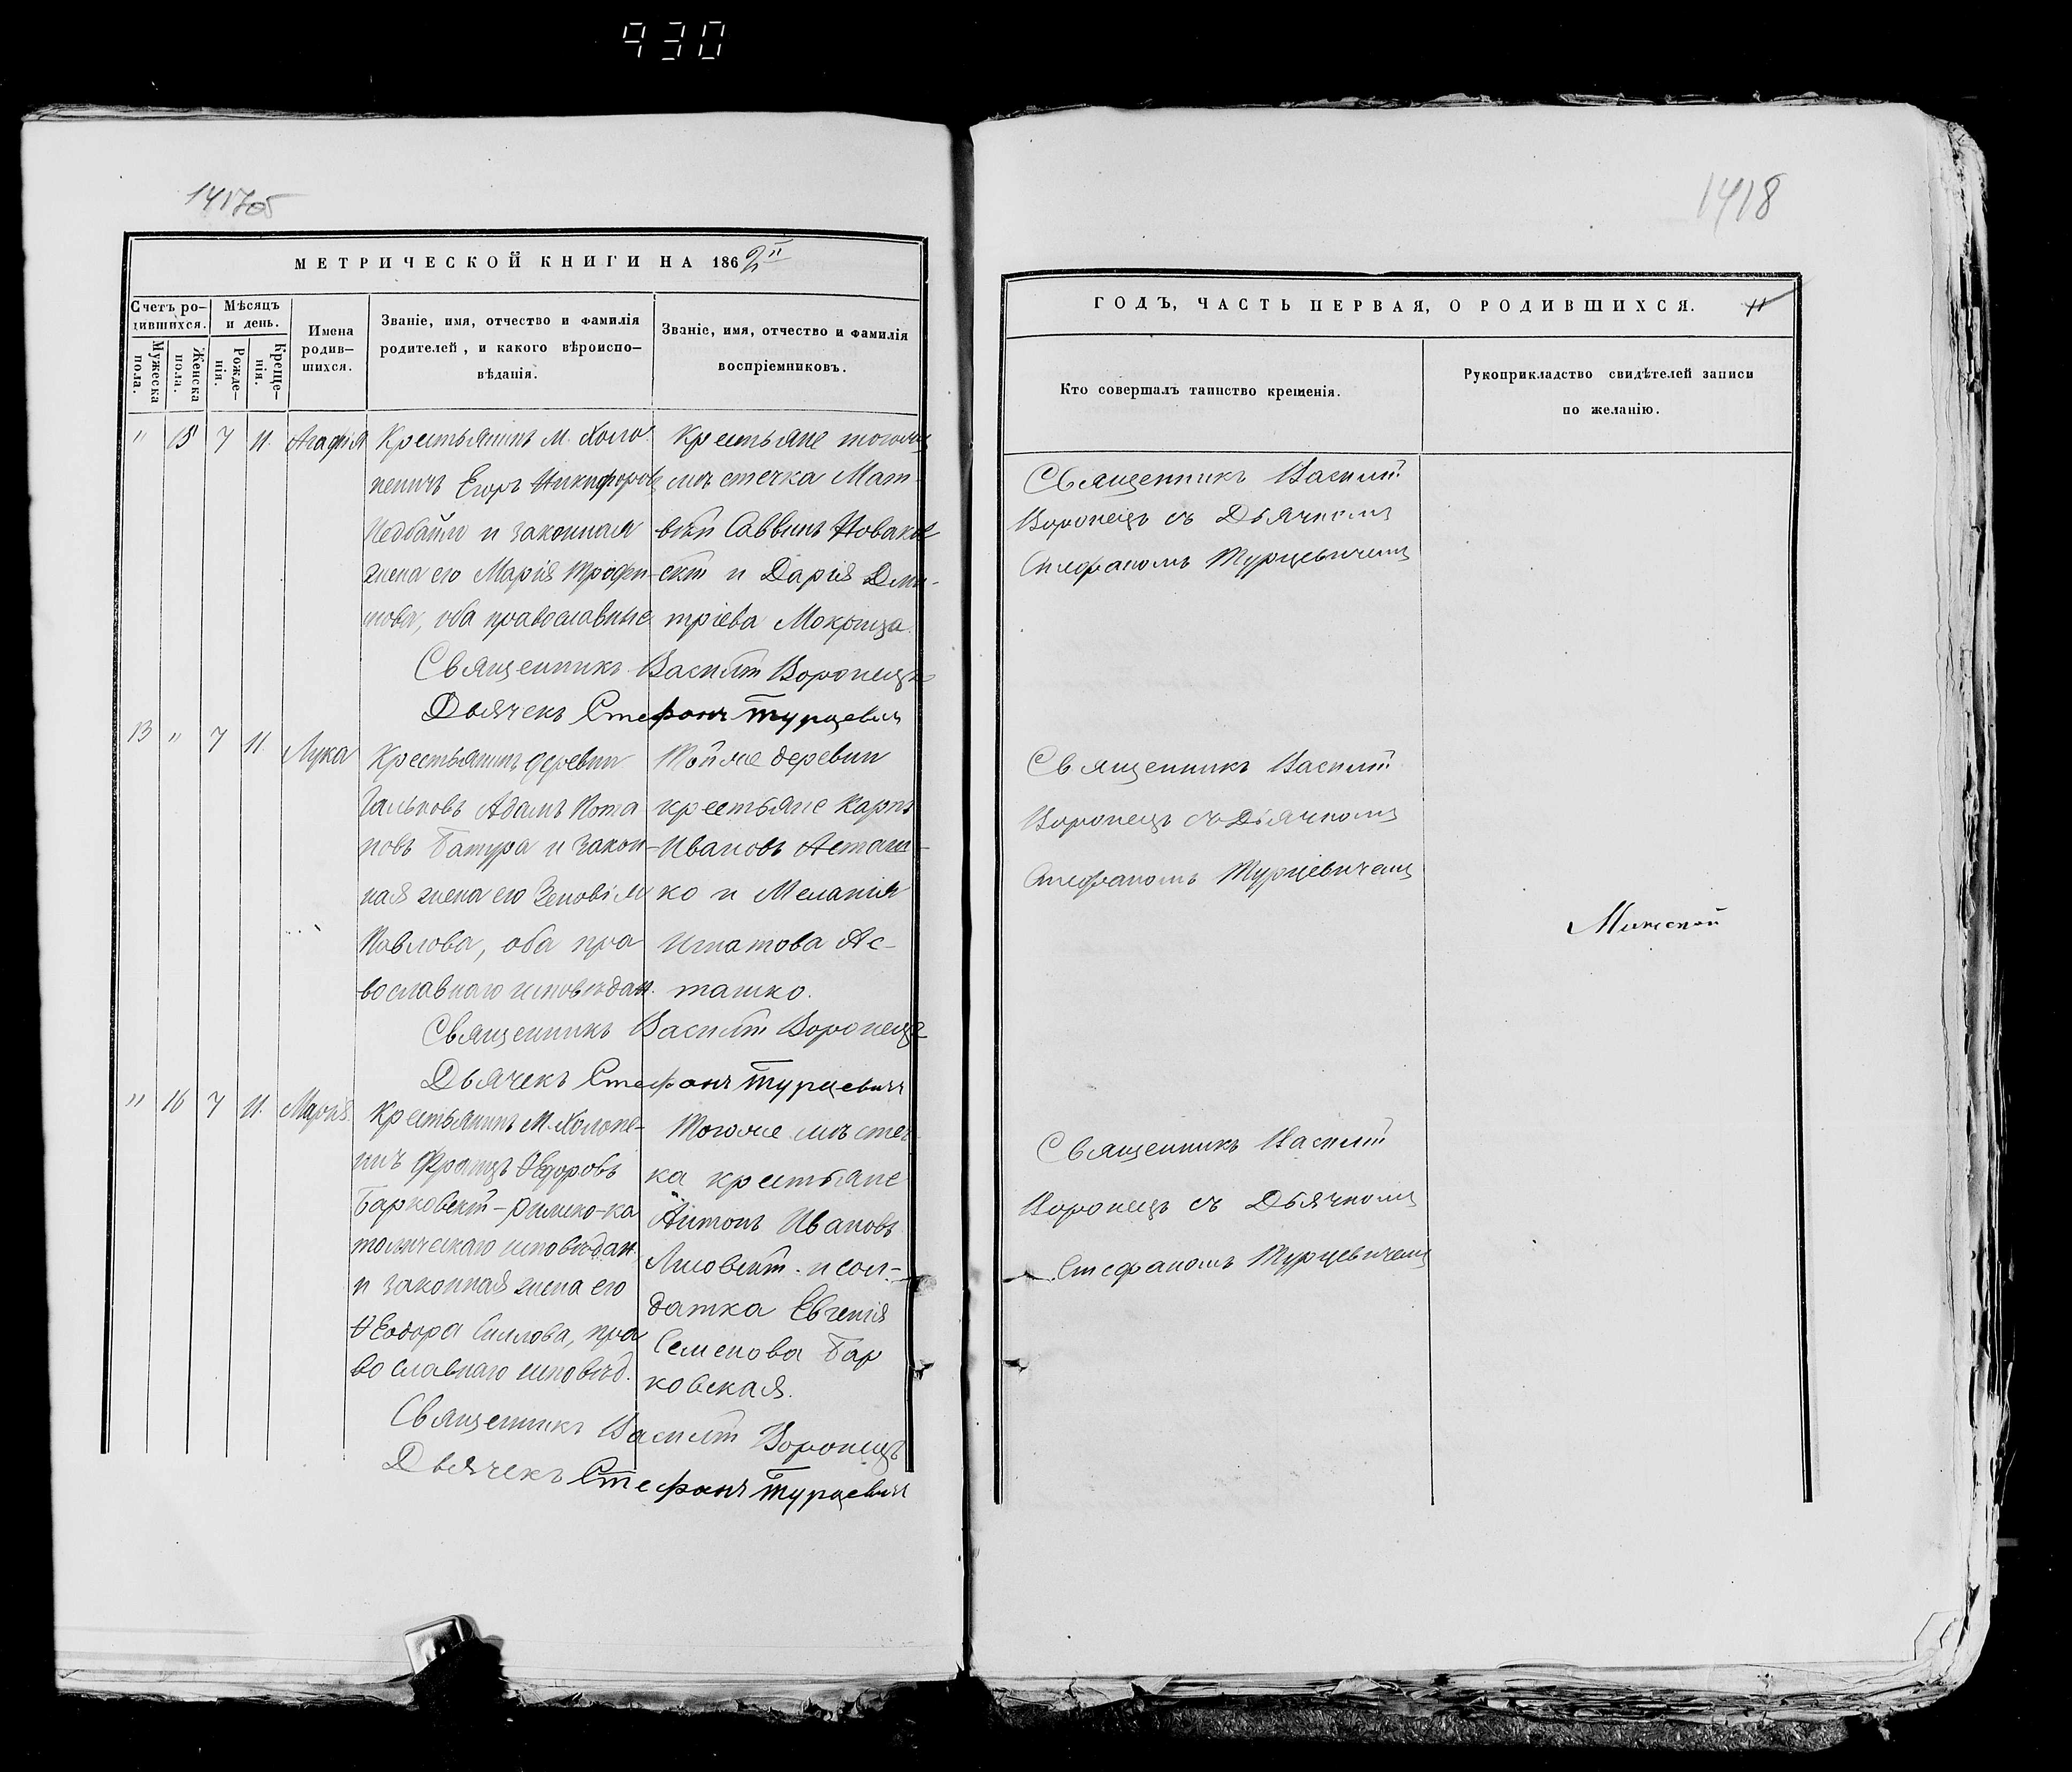 930
1417об
МЕТРИЧЕСКОЙ КНИГИ НА 186
Счетъ ро-
дившихся.
Мужеска
пола.
Женска
пола.
Мѣсяцъ
и день.
Рожде-
нія.
Креще-
нія.
Имена
родив-
шихся.
Званіе, имя, отчество и фамилія
родителей, и какого вѣроиспо-
вѣданія.
Званіе, имя, отчество и фамилія
воспріемниковъ.
" 15 7 11. Агафія
Крестьянинъ М. Холо-
пеничъ Егоръ Никифоровъ
Недбайло и законная
жена его Марія Трофи-
мова, оба православные
Крестьяне тогоже
мѣстечка Мат-
вѣй Саввинъ Новаков-
скій и Дарія Дми-
тріева Мокрица.
Священникъ Василій Воронецъ
Дьячекъ Стефанъ Турцевич
13 " 7 11. Лука
Крестьянинъ деревни
Гальковъ Адамъ Пота
повъ Батура и закон-
ная жена его Зеновія
Павлова, оба пра
вославнаго исповѣдан.
Той же деревни
крестьяне Карпъ
Ивановъ Асташ-
ко и Меланія
Игнатова Ас-
ташко.
Священникъ Василій Воронецъ
Дьячекъ Стефанъ Турцевич
" 16 7 11. Марія
Крестьянинъ М. Холопе-
ничъ Францъ Ѳедоровъ
Барковскій - римско-ка
толическаго исповѣдан.
и законная жена его
Ѳеодора Силлова, пра
вославнаго исповѣд.
Тогоже мѣстеч
ка крестьяне
Антонъ Ивановъ
Лисовскій и сол-
датка Евгенія
Семенова Бар
ковская.
Священникъ Василій Воронецъ
Дьячекъ Стефанъ Турцевич
1418
ГОДЪ, ЧАСТЬ ПЕРВАЯ, О РОДИВШИХСЯ. 11
Кто совершалъ таинство крещенія.
Рукоприкладство свидѣтелей записи
по желанію.
Священникъ Василій
Воронецъ съ Дьячкомъ
Стефаномъ Турцевичемъ
Священникъ Василій
Воронецъ съ Дьячкомъ
Стефаномъ Турцевичемъ
Минской
Священникъ Василій
Воронецъ съ Дьячкомъ
Стефаномъ Турцевичемъ